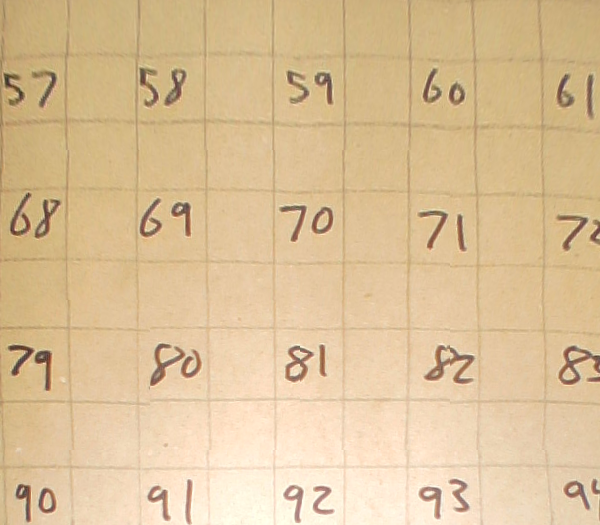 57 58 59 60 61
68 69 70 71 72
79 80 81 82 83
90 91 92 93 94